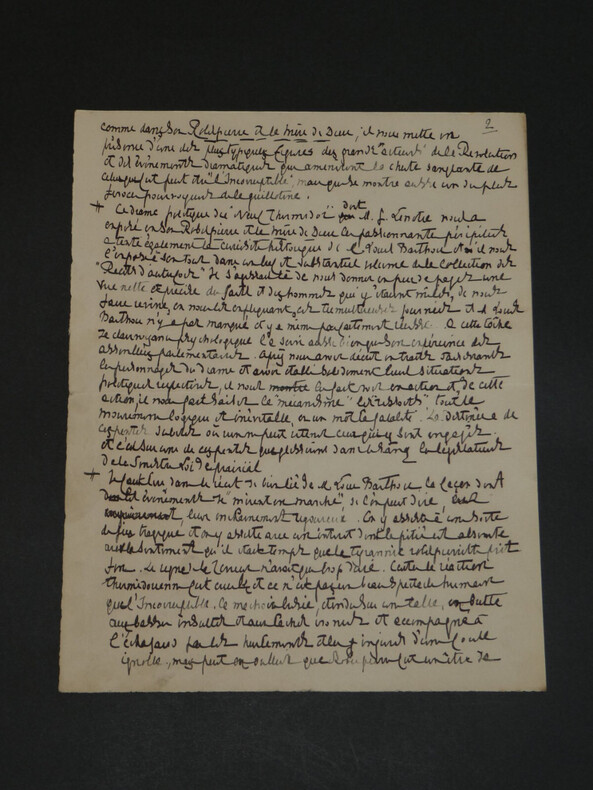 2
comme dans son Robespierre et la mère de Dieu, il nous mette en
présence d'une des plus typiques figures des grands "acteurs" de la Révolution
et des événements dramatiques qui amenèrent la chute sanglante de
celui qui fut peut-être "l'Incorruptible" mais qui se montre aussi un des plus
féroces pourvoyeurs de la guillotine.
+ Ce drame politique du "Neuf Thermidor" dont M. G. Lenotre nous a
exposé en son Robespierre et la mère de Dieu les passionnantes péripéties
a tenté également la curiosité historique de M. Louis Barthou et il nous
l'expose à son tour dans un bref et substantiel volume de la Collection des
"Récits d'autrefois". Il s'agissait là de nous donner en peu de pages une
vue nette et précise des faits et des hommes qui s'y étaient mêlés, de nous
faire revivre, en nous les expliquant, ces tumultueuses journées et M. Louis
Barthou n'y a pas manqué et y a même parfaitement réussi. A cette tâche
le clairvoyant psychologue l'a servi aussi bien que son expérience des
assemblées parlementaires. Après nous avoir décrit en traits saisissants
les personnages du drame et avoir établi solidement leurs situations
politiques respectives, il nous montre les fait voir en action et, de cette
action, il nous fait saisir le "mécanisme" les ressorts, tout le
mouvement logique et inévitable, en un mot la fatalité. La destinée a de
ces pentes subites où l'on ne peut retenir ceux qui s'y sont engagés
et c'est sur une de ces pentes que glissèrent dans le sang les législateurs
de la sinistre loi de prairial.
+ Il faut lire dans le récit si bien lié de M. Louis Barthou la façon dont
les événements se "mirent en marche" si l'on peut dire,
leur enchaînement rigoureux. On y assiste à une sorte
de jeu tragique et on y assiste avec un intérêt dont la pitié est absente
avec le sentiment qu'il était temps que la tyrannie robespierriste prît
fin. Le règne de la Terreur n'avait que trop duré. Certes la réaction
thermidorienne fut cruelle et ce n'est pas un beau spectacle humain
que l'Incorruptible, la mâchoire brisée, étendu sur une table, en butte
aux basses insultes et aux lâches ironies et accompagné à
l'échafaud par les hurlements et les injures d'une foule
ignoble, mais peut-on oublier que Robespierre fut un être de